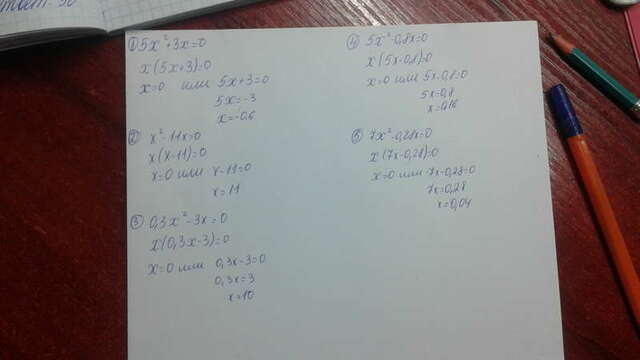 ① 5x²+3x=0
x(5x+3)=0
x=0 или 5x+3=0
5x=-3
x=-0,6
② x²-11x=0
x(x-11)=0
x=0 или x-11=0
x=11
③ 0,3x²-3x=0
x(0,3x-3)=0
x=0 или 0,3x-3=0
0,3x=3
x=10
④ 5x²-0,8x=0
x(5x-0,8)=0
x=0 или 5x-0,8=0
5x=0,8
x=0,16
⑤ 7x²-0,28x=0
x(7x-0,28)=0
x=0 или 7x-0,28=0
7x=0,28
x=0,04